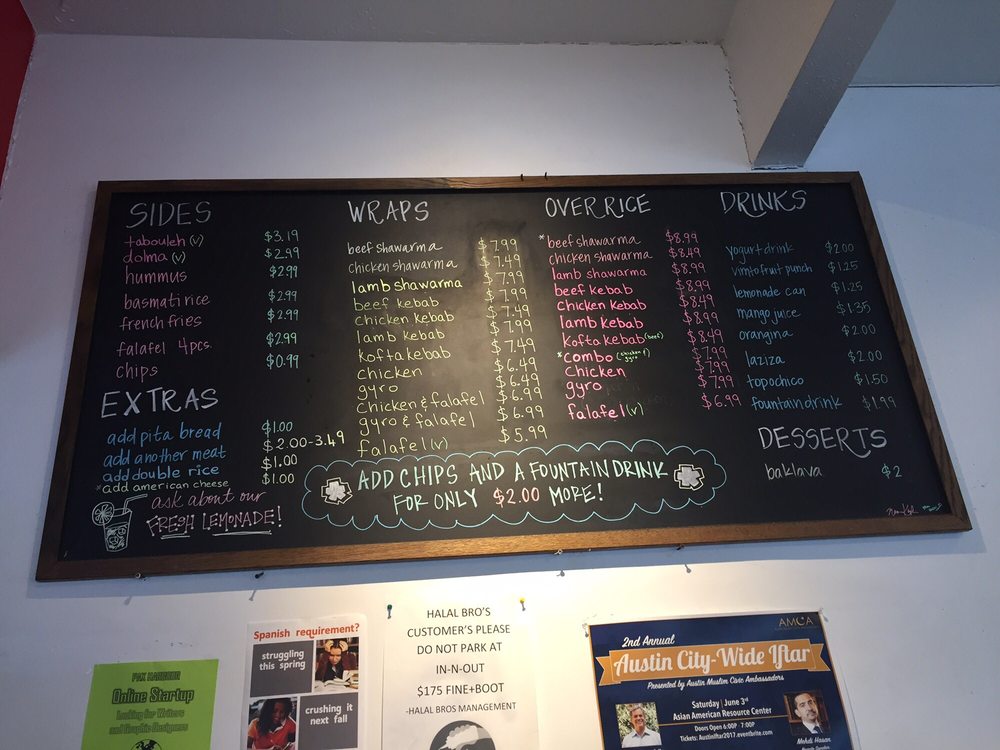 SIDES
tabouleh (v) $3.19
dolma (v) $2.99
hummus $2.99
basmati rice $2.99
french fries $2.99
falafel 4pcs. $2.99
chips $0.99
EXTRAS
add pita bread $1.00
add another meat $2.00-3.49
add double rice $1.00
*add american cheese $1.00
ask about our
FRESH LEMONADE!
WRAPS
beef shawarma $7.99
chicken shawarma $7.49
lamb shawarma $7.99
beef kebab $7.99
chicken kebab $7.49
lamb kebab $7.99
kofta kebab $7.49
chicken $6.49
gyro $6.49
chicken & falafel $6.99
gyro & falafel $6.99
falafel (v) $5.99
OVER RICE
*beef shawarma $8.99
chicken shawarma $8.49
lamb shawarma $8.99
beef kebab $8.99
chicken kebab $8.49
lamb kebab $8.99
kofta kebab (beef) $8.49
*combo (chicken & gyro) $7.99
chicken $7.99
gyro $7.99
falafel (v) $6.99
DRINKS
yogurt drink $2.00
vimto fruit punch $1.25
lemonade can $1.25
mango juice $1.35
orangina $2.00
laziza $2.00
topochico $1.50
fountain drink $1.99
DESSERTS
baklava $2
ADD CHIPS AND A FOUNTAIN DRINK
FOR ONLY $2.00 MORE!
Online Startup
Looking for Writers
and Graphic Designers
Spanish requirement?
struggling
this spring
crushing it
next fall
HALAL BRO'S
CUSTOMER'S PLEASE
DO NOT PARK AT
IN-N-OUT
$175 FINE+BOOT
-HALAL BROS MANAGEMENT
AMCA
2nd Annual
Austin City-Wide Iftar
Presented by Austin Muslim Civic Ambassadors
Saturday | June 3rd
Asian American Resource Center
Doors Open 6:00P - 7:00P
Tickets: Austiniftar2017.eventbrite.com
Mehdi Hasan